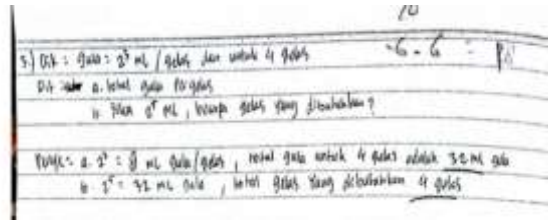 10
-6 - 6 =
5.) Dik : gula : 2³ mL / gelas dan untuk 4 gelas
Dit : a. total gula
b. Jika 2⁵ mL, berapa gelas yang dibutuhkan?
a. 2³ = 8 mL gula/gelas, total gula untuk 4 gelas adalah 32 mL gula
b. 2⁵ = 32 mL gula, total gelas yang dibutuhkan 4 gelas